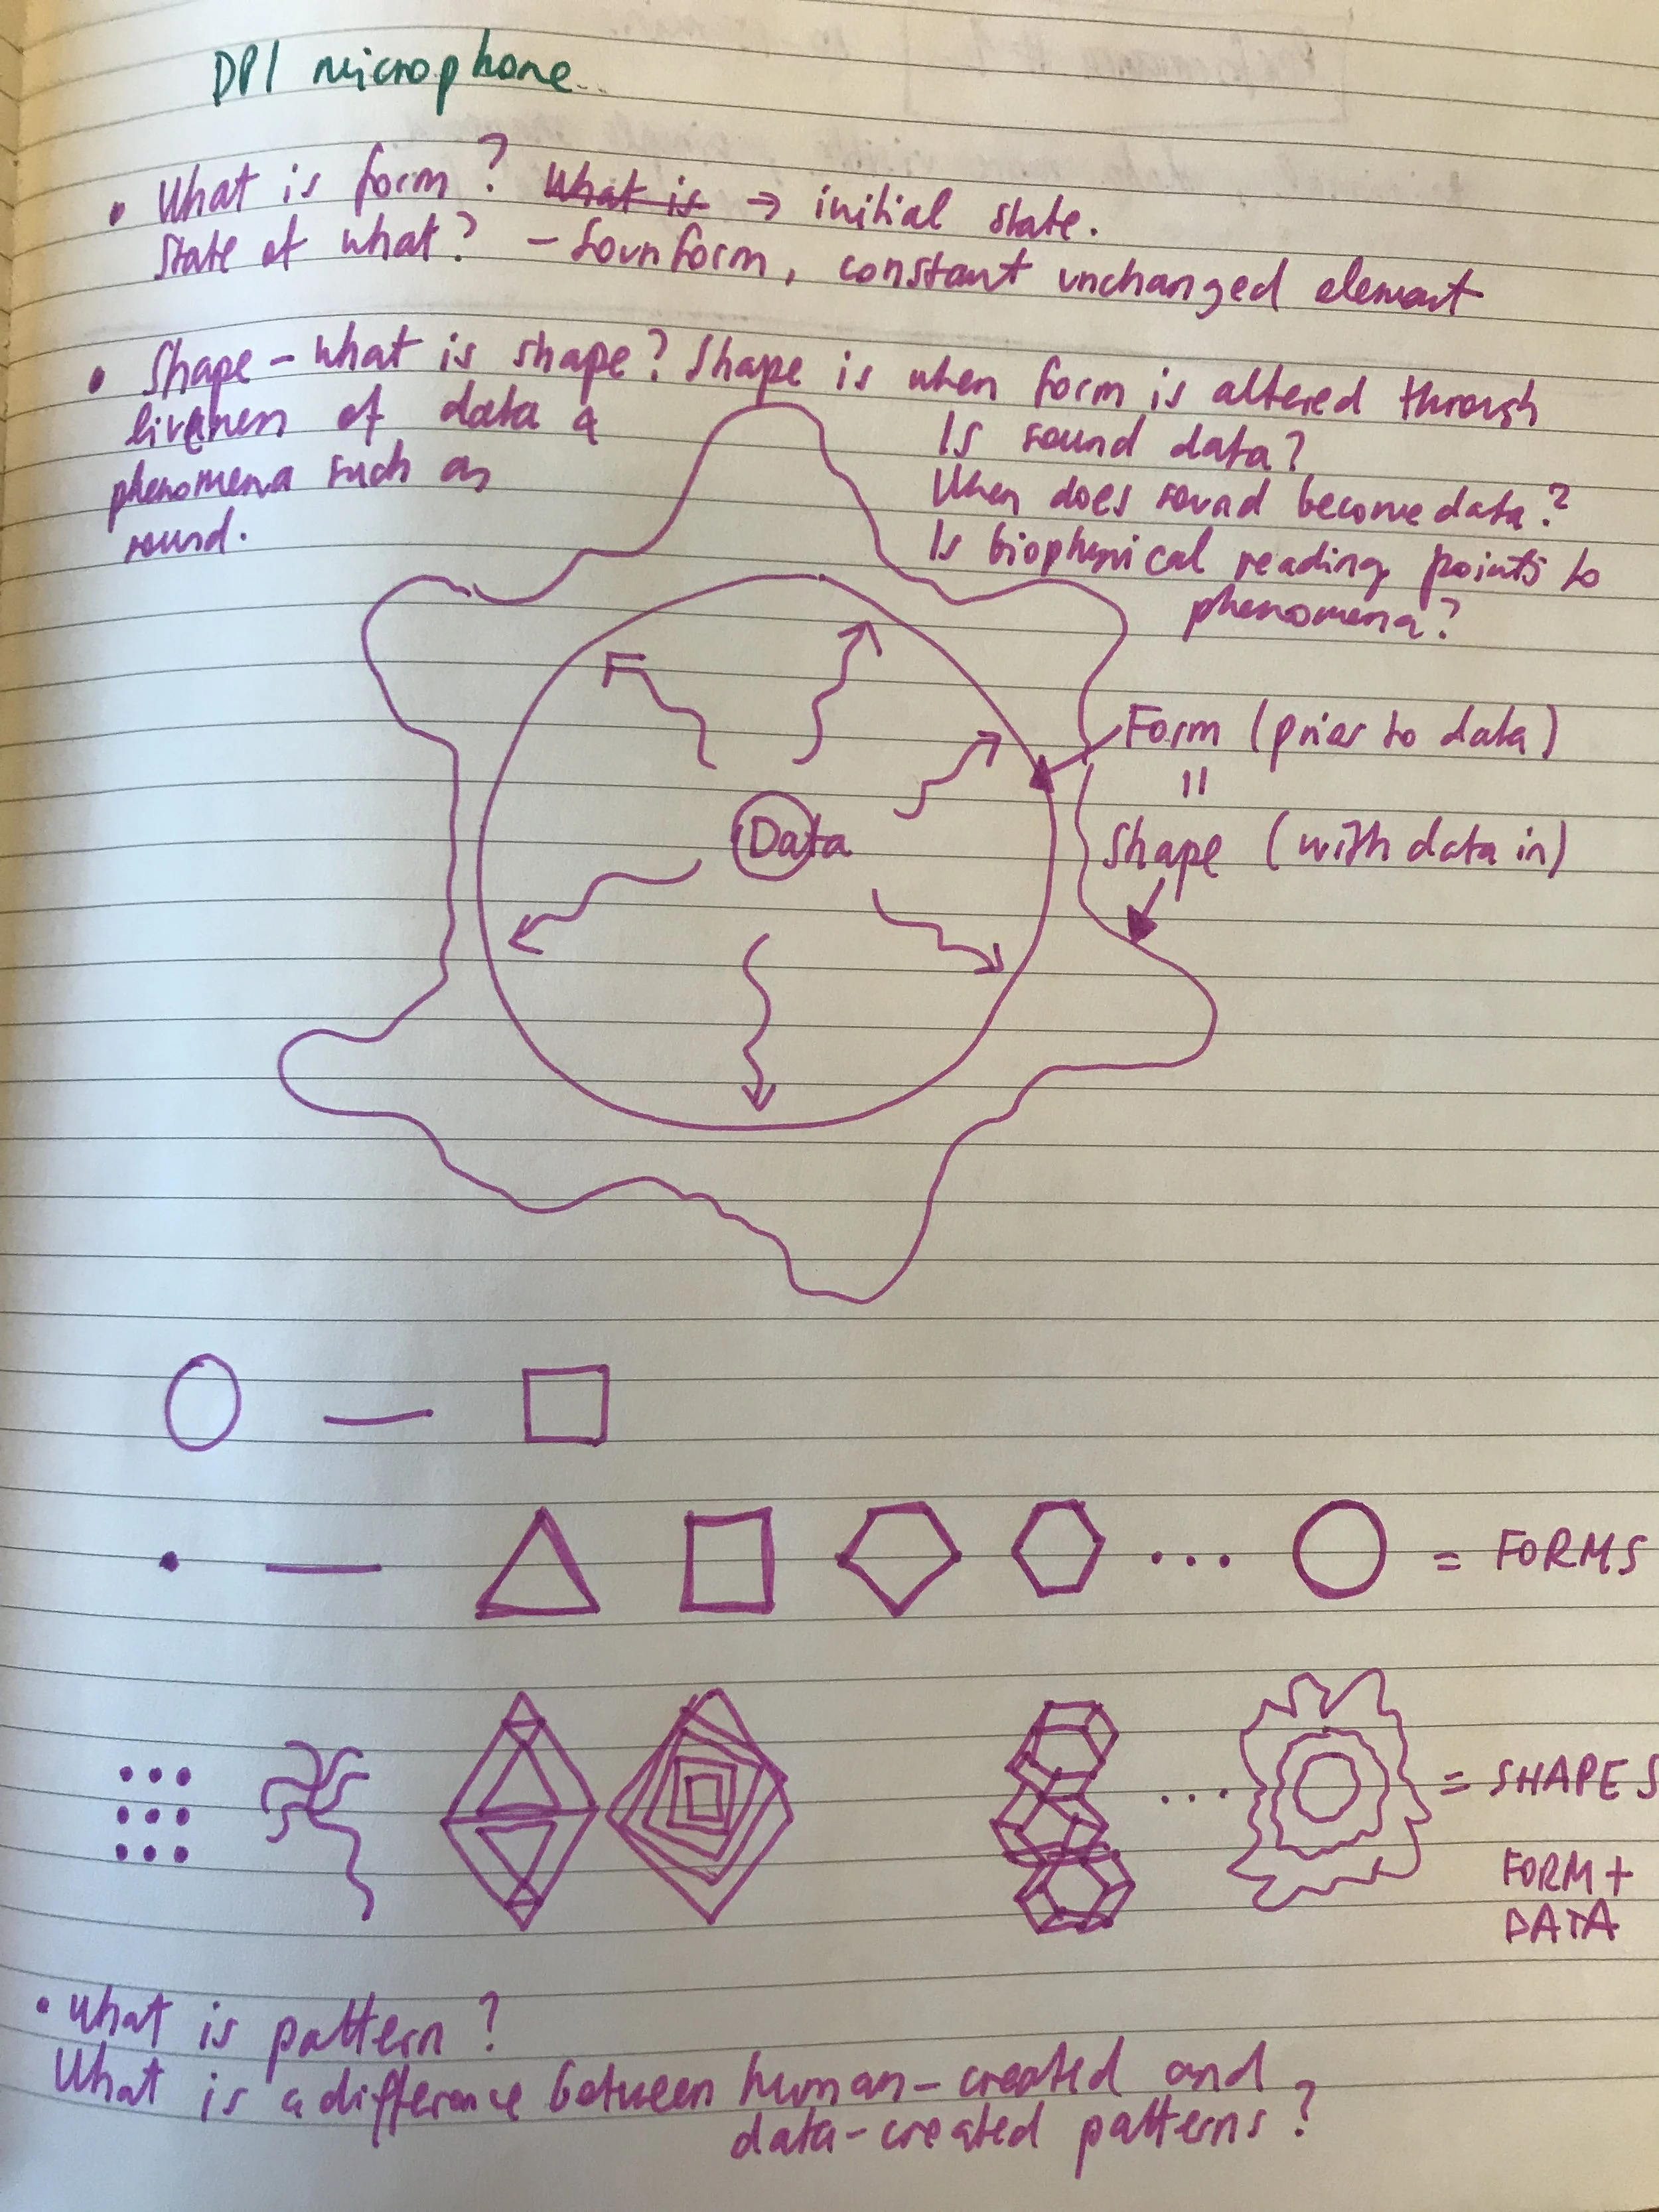 DPI microphone
• What is form? What is → initial state.
State of what? – constant unchanged element
• Shape – what is shape? Shape is when form is altered through
liveness of data &
phenomena such as
sound.
Is sound data?
When does sound become data?
Is reading points to
phenomena?
Form (prior to data)
=
Shape (with data in)
Data
... = FORMS
... = SHAPES
FORM +
DATA
• What is pattern?
What is a difference between human-created and
data-created patterns?